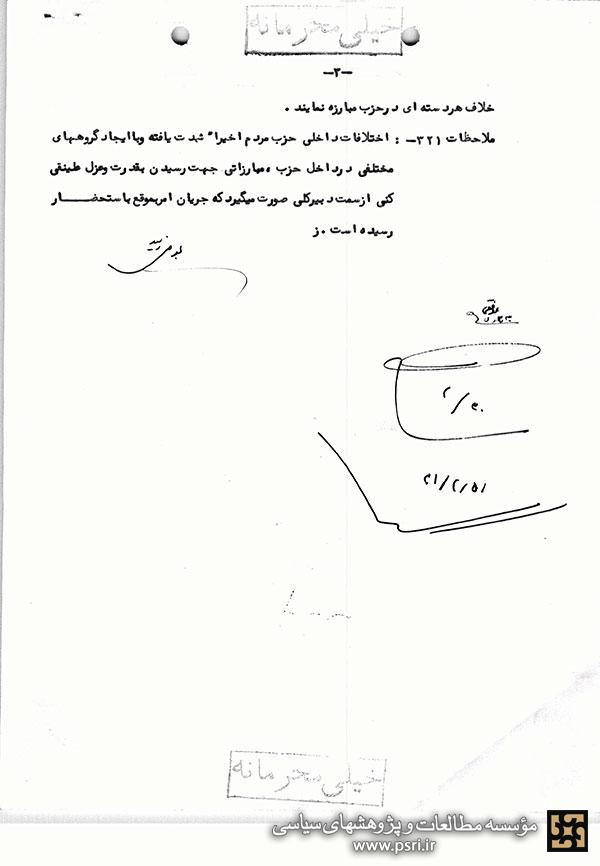 خیلی محرمانه
-۳-
خلاف هردسته ای درحزب مبارزه نمایند .
ملاحظات ۳۲۱- : اختلافات داخلی حزب مردم اخیرا" شدت یافته وباایجادگروههای
مختلفی درداخل حزب ،مبارزاتی جهت رسیدن بقدرت وعزل علینقی
کنی ازسمت دبیرکلی صورت میگیردکه جریان امربموقع باستحضار
رسیده است .ز
۲/۳۰
۳۱/۲/۵۱
خیلی محرمانه
مؤسسه مطالعات و پژوهشهای سیاسی
www.psri.ir